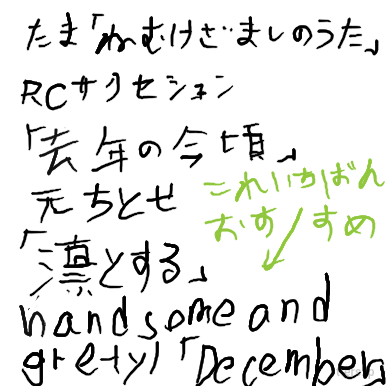 たま「ねむけざましのうた」
RCサクセション
「去年の今頃」
元ちとせ
これいちばん
おすすめ
「凛とする」
handsome and
gretyl「December」